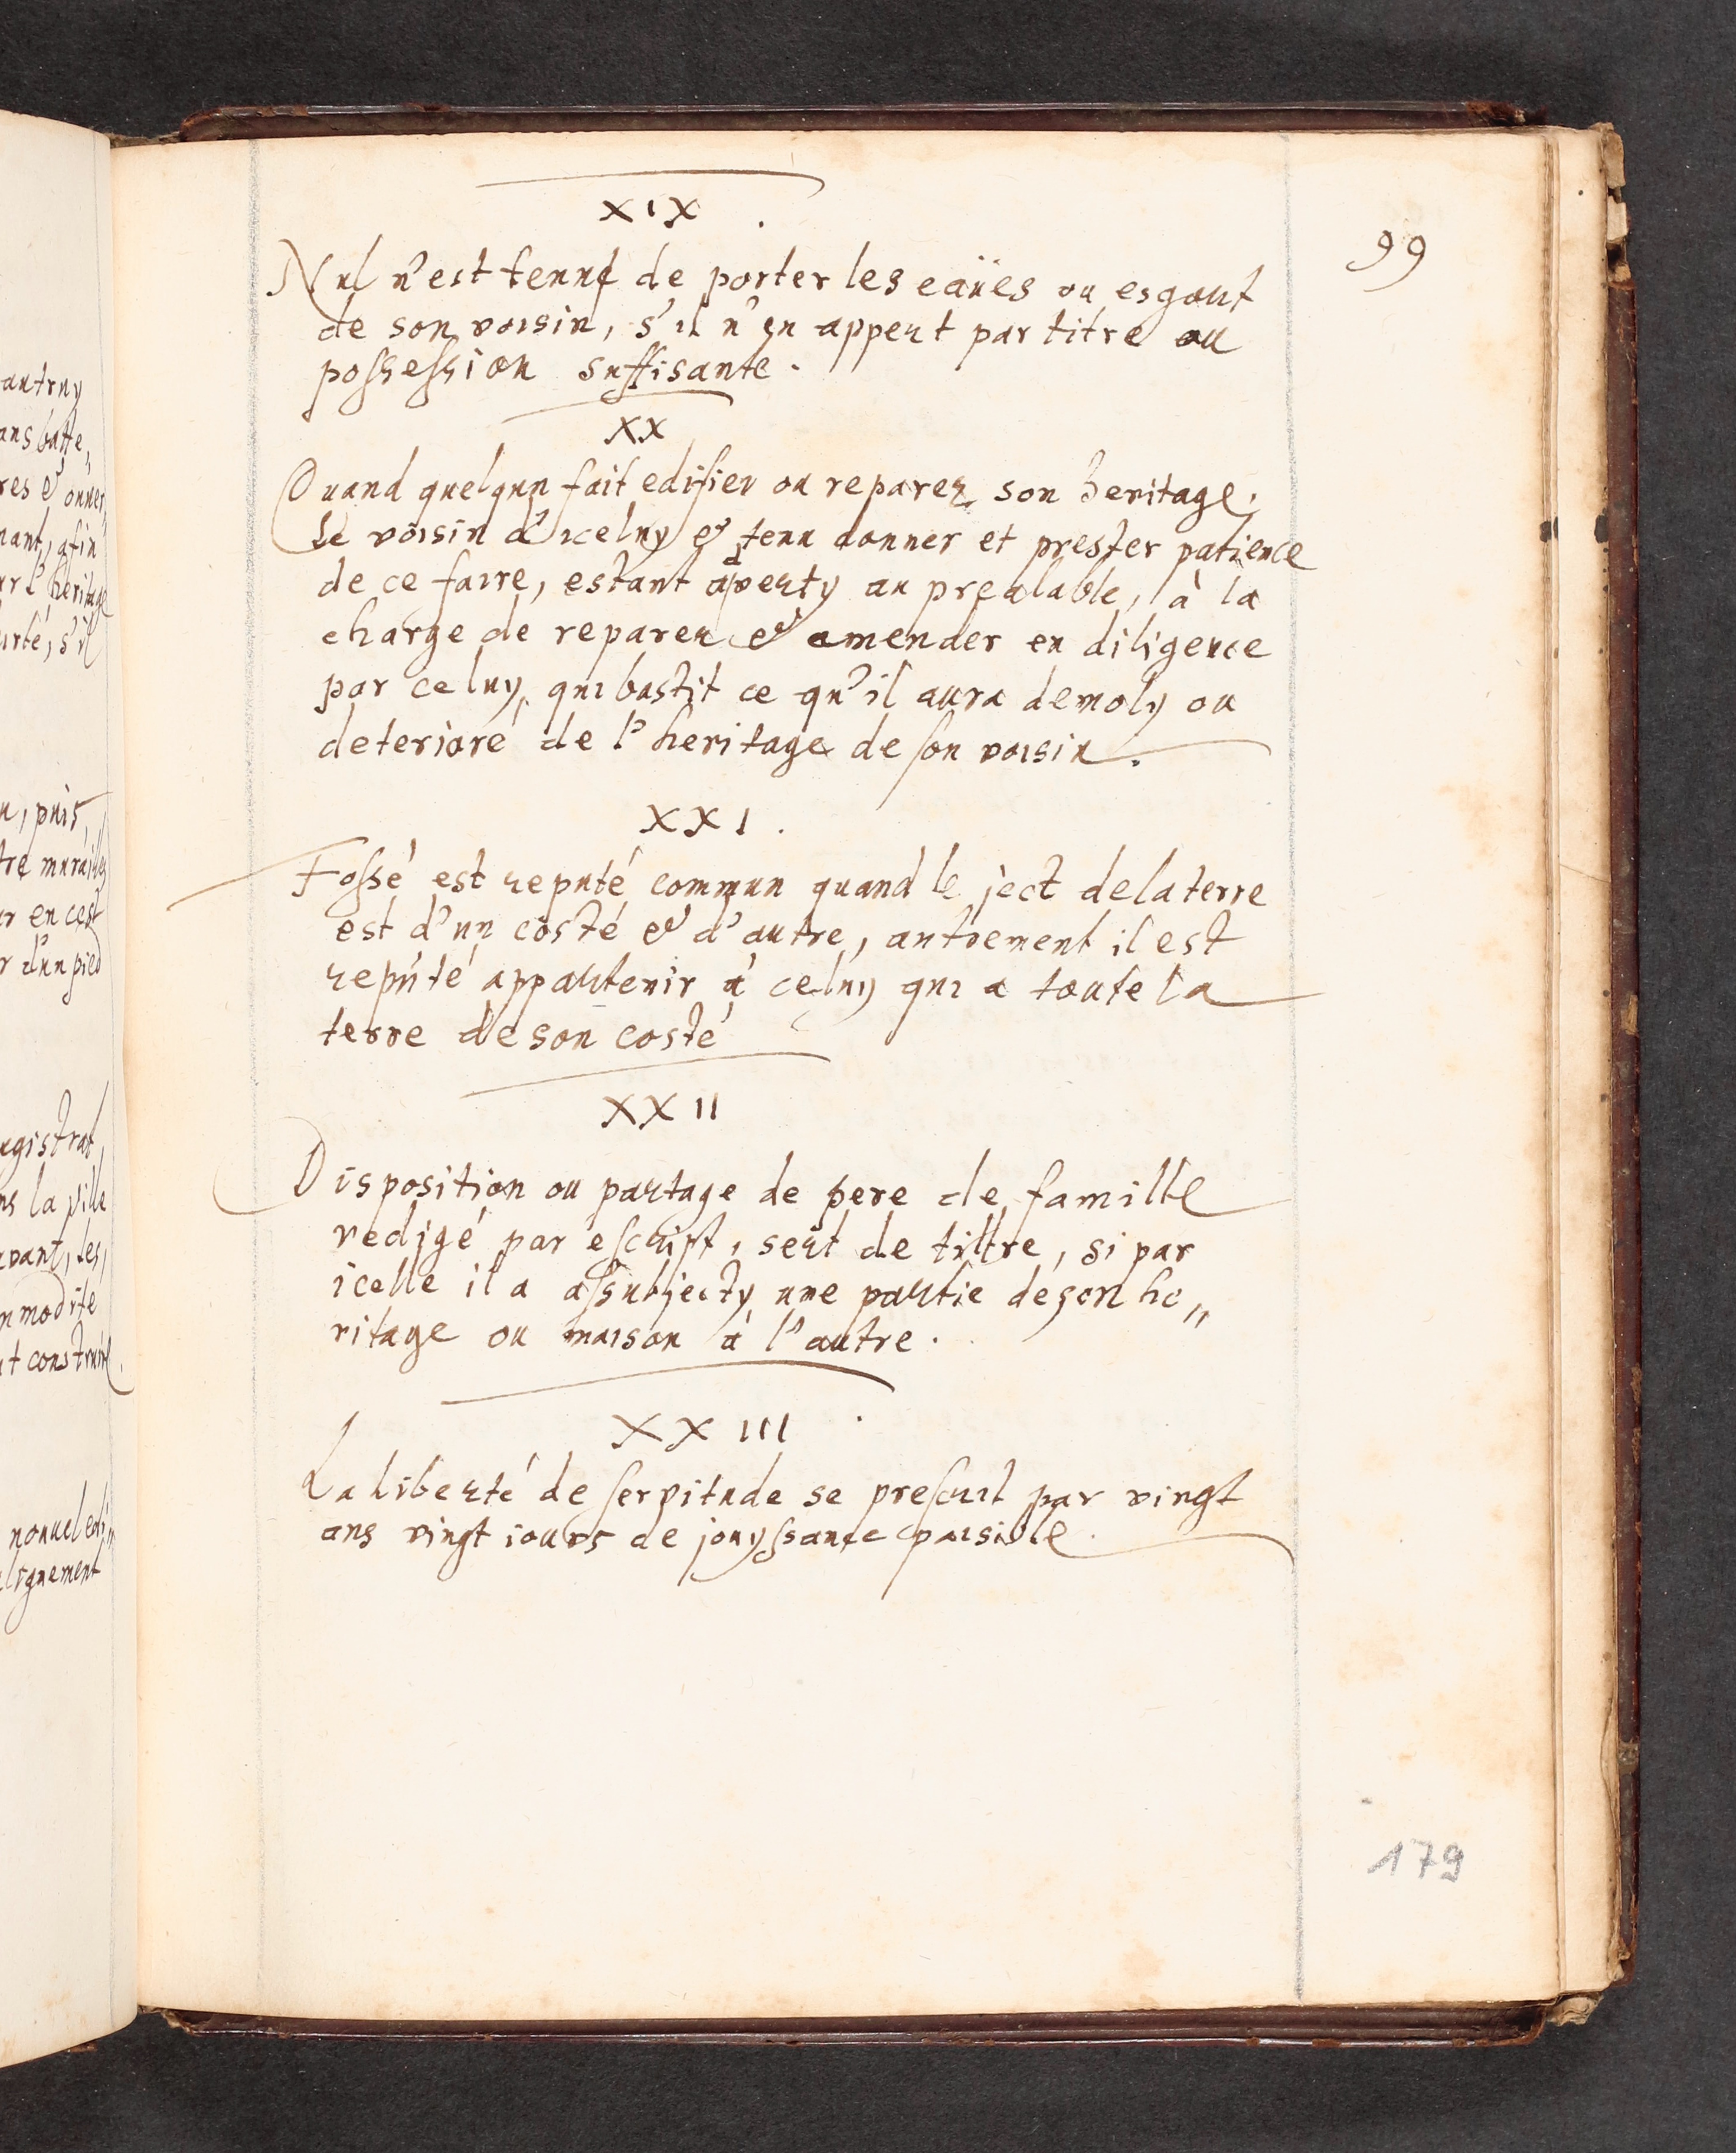 XIX.
99
Nul n'est tenu de porter les eaües ou esgout
de son voisin, s'il n'en appert par titre ou
possession suffisante.
XX
Quand quelqun fait edifier ou reparer son heritage.
Le voisin d'iceluy & tenu donner et prester patience
de ce faire, estant adverty au prealable, à la
charge de reparer & amender en diligence
par celuy, qui bastit ce qu'il aura demoly ou
deterioré de l'heritage de son voisin.
XXI.
Fossé est reputé commun quand le ject de la terre
est d'un costé & d'autre, autrement il est
reputé appartenir à celuy qui a toute la
terre de son costé
XXII
Disposition ou partage de pere de famille
redigé par escript, sert de tiltre, si par
icelle il a assubjecty une partie de son he„
ritage ou maison à l'autre.
XXIII.
La Liberté de servitude se prescrit par vingt
ans vingt iours de jouyssance paisible.
179
autruy
res &
afin
heritage
s'il
puis
en cest
d'un pied
la ville
les
nouvel edi